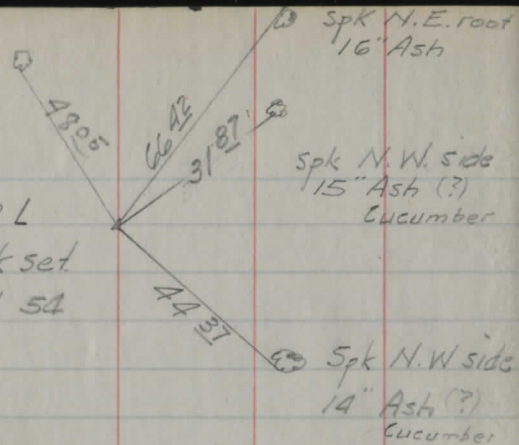 Spk N.E. root
16" Ash
48 05
66 42
31 87
Spk N.W. side
15" Ash (?)
Cucumber
L
k set
54
44 37
Spk N.W side
14" Ash (?)
Cucumber